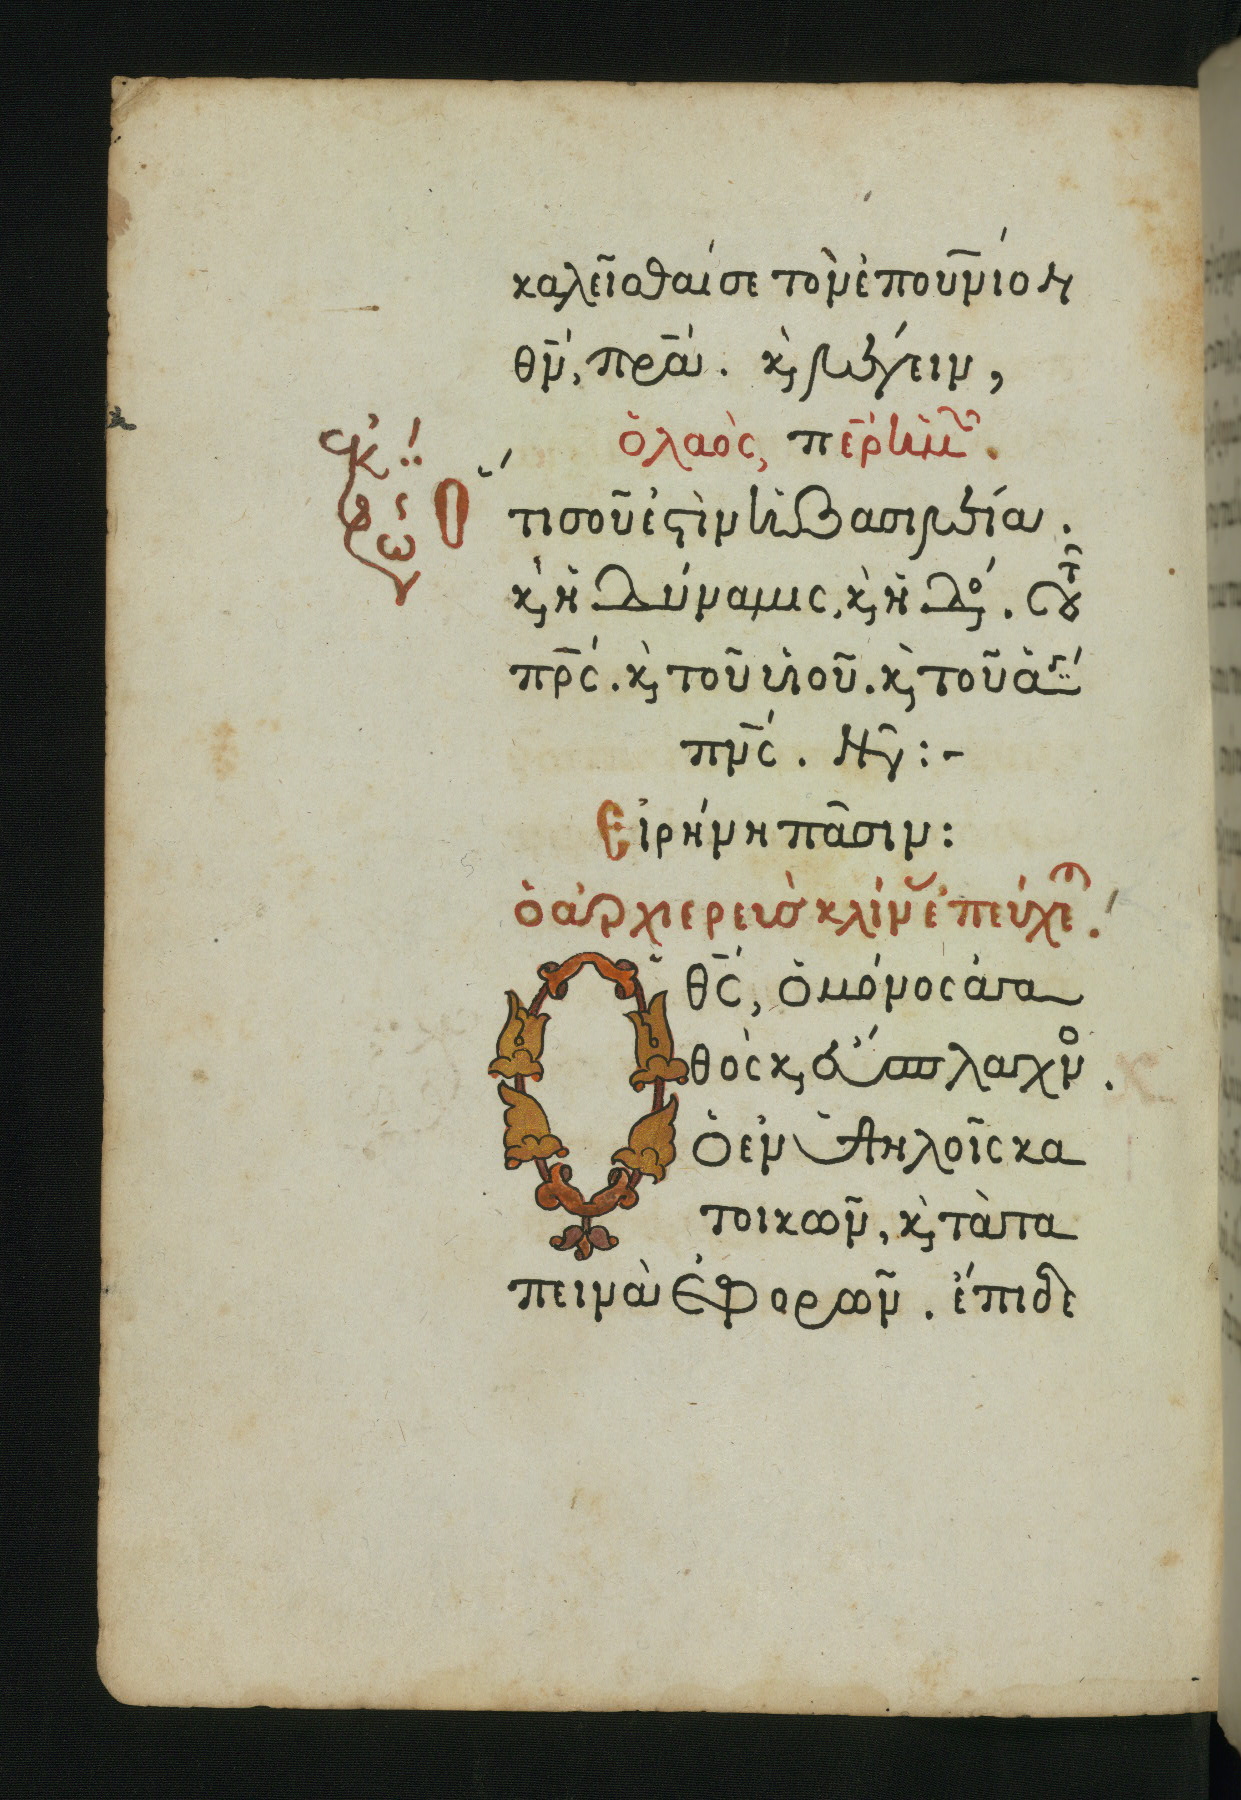 καλεῖσθαί σε τὸν ἐπου̅νιον
θ̅ν, πρ̅α. κ̀ λέγειν,
ὁ λαὸς, π̅ερ ἡμ
Ὅτι σοῦ ἐστὶν ἡ βασιλεία.
κ̀ ἡ δύναμις, κ̀ ἡ δό. τοῦ
πρ̅ς. κ̀ τοῦ υἱοῦ. κ̀ τοῦ ἁγί
πν̅ς. Νῦ :-
Εἰρήνη πᾶσιν :
ὁ ἀρχιερεὺς κλίν ἐπεύχε.
Ὁ θ̅ς, ὁ μόνος ἀγα
θὸς κ̀ εὔσπλαγχνο.
ὁ ἐν ὑψηλοῖς κα
τοικῶν, κ̀ τὰ τα
πεινὰ ἐφορῶν. ἔπιδε